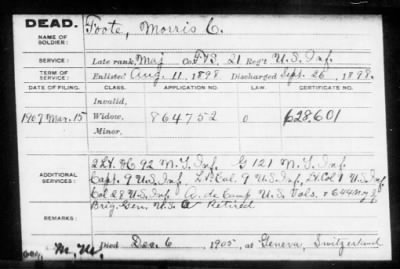 DEAD.
NAME OF SOLDIER: Foote, Morris C.
SERVICE: Late rank, Maj Co. F&S. 21 Reg't U.S. Inf.
TERM OF SERVICE: Enlisted Aug. 11, 1898 Discharged Sept. 26, 1898.
DATE OF FILING. CLASS. APPLICATION NO. LAW. CERTIFICATE NO.
Invalid,
1907 Mar. 15 Widow, 864752 0 628,601
Minor,
ADDITIONAL SERVICES: 2 Lt. 92 N.Y. Inf. G 121 N.Y. Inf.
Capt. 9 U.S. Inf. Lt. Col. 9 U.S. Inf, Lt. Col 1 U.S. Inf
Col 28 U.S. Inf A. de Camp U.S. Vols. + 44 N.Y.
REMARKS: Brig. Gen. U.S. A Retired
Died Dec. 6, 1905, at Geneva, Switzerland